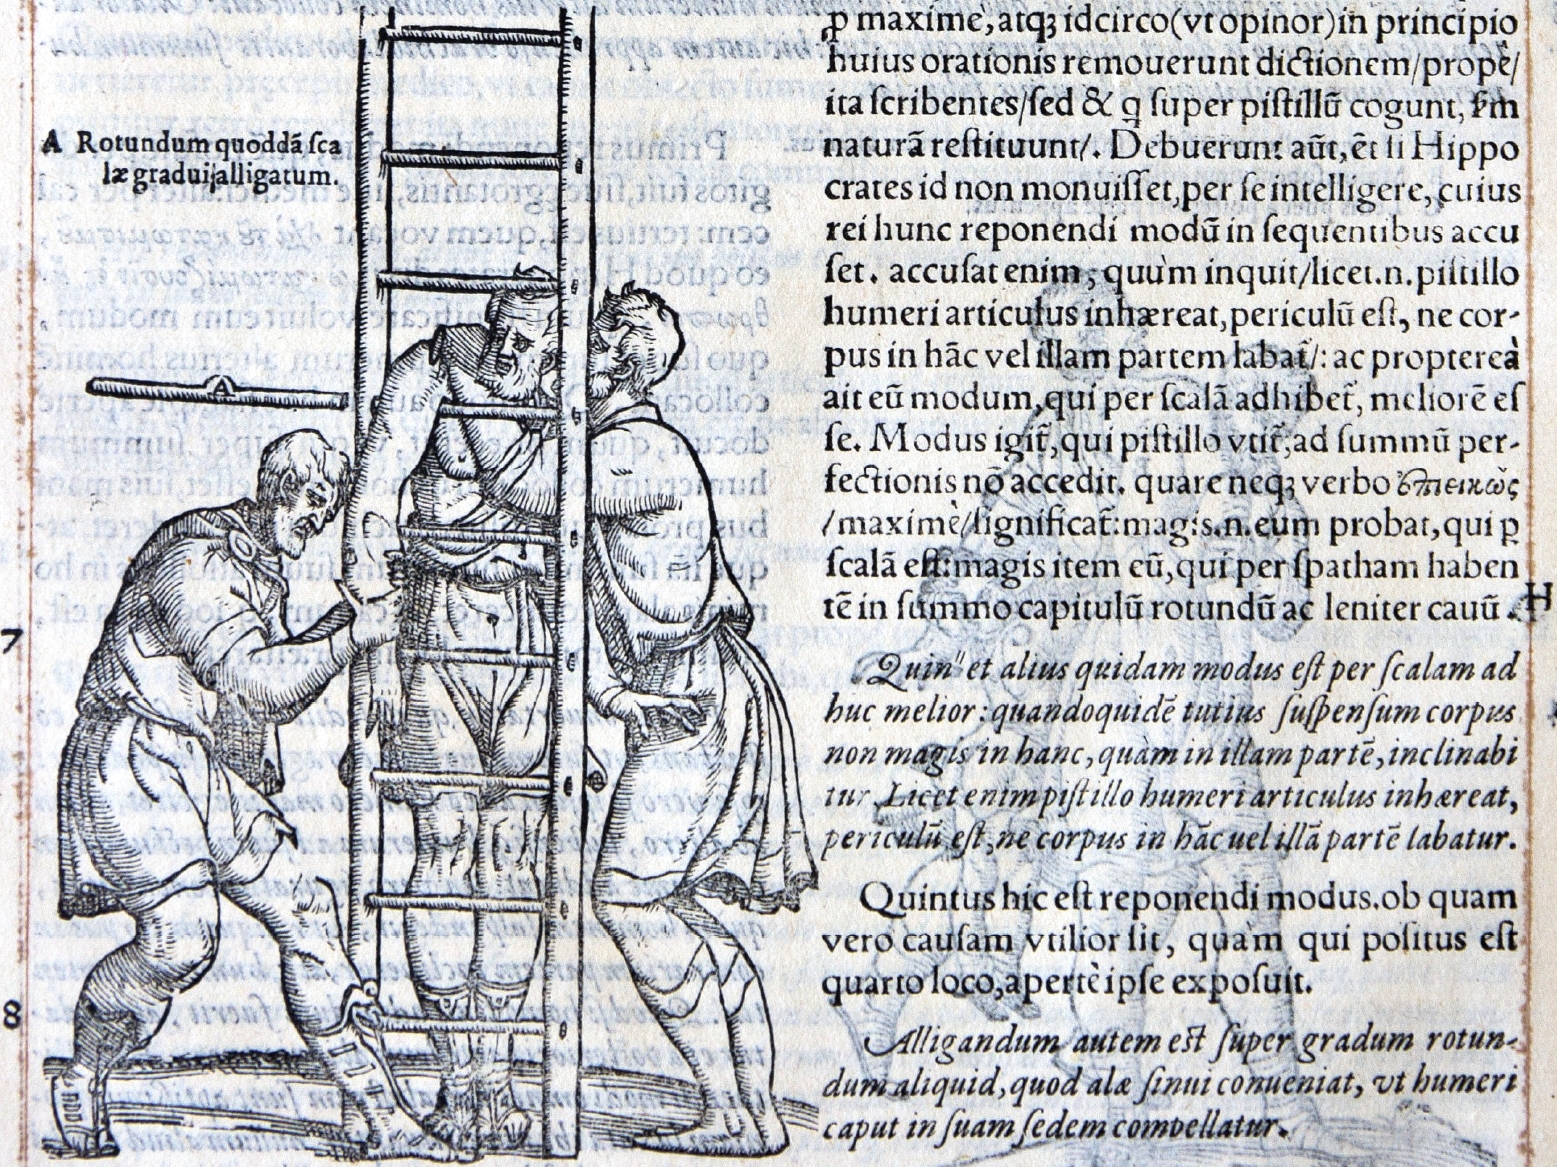 A Rotundum quoddã ſca
læ gradui alligatum.
A
7
8
ꝑ maximè, atqꝫ idcirco (vt opinor) in principio
huius orationis remouerunt dictionem/propè/
ita ſcribentes/ſed & q ſuper piſtillũ cogunt, ẜm
naturã reſtituunt/. Debuerunt aũt, ẽt ſi Hippo
crates id non monuiſſet, per ſe intelligere, cuius
rei hunc reponendi modũ in ſequentibus accu
ſet. accuſat enim, quùm inquit/licet.n.piſtillo
humeri articulus inhæreat, periculũ eſt, ne cor-
pus in hãc vel illam partem labat̃/: ac proptereà
ait eũ modum, qui per ſcalã adhibet̃, meliorẽ eſ
ſe. Modus igit̃, qui piſtillo vtit̃, ad ſummũ per-
fectionis nõ accedit. quare neqꝫ verbo ἐπιεικῶς
/maximè/ſignificat: magis.n.eum probat, qui ꝑ
ſcalã eſt: magis item eũ, qui per ſpatham haben
tẽ in ſummo capitulũ rotundũ ac leniter cauũ. H
Quin et alius quidam modus eſt per ſcalam ad
huc melior: quandoquidẽ tutius ſuſpenſum corpus
non magis in hanc, quàm in illam partẽ, inclinabi
tur. Licet enim piſtillo humeri articulus inhæreat,
periculũ eſt, ne corpus in hãc uel illã partẽ labatur.
Quintus hic eſt reponendi modus. ob quam
vero cauſam vtilior ſit, quàm qui poſitus eſt
quarto loco, apertè ipſe expoſuit.
Alligandum autem est ſuper gradum rotun-
dum aliquid, quod alæ ſinui conueniat, vt humeri
caput in ſuam ſedem compellatur.